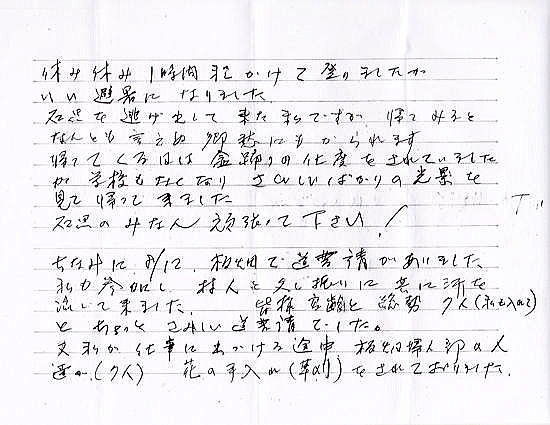 休み休み1時間程かけて登りましたが
いい避暑になりました。
石黒を逃げ出して来た私ですが、帰ってみると
なんとも言えぬ郷愁にもかられます
帰ってくる日は盆踊りの仕度をされていました
が学校もなくなりさびしいばかりの光景を
見て帰って来ました
石黒のみなさん頑張って下さい!
ちなみに、8/12、板畑で道普請がありました。
私も参加し、村人と久し振りに共に汗を
流して来ました。 皆様高齢と総勢 9人(私も入れて)
と ちょっと さみしい道普請でした。
又私が仕事に出かける途中 板畑婦人部の人
達が、(9人) 花の手入れ(草刈)をされておりました。